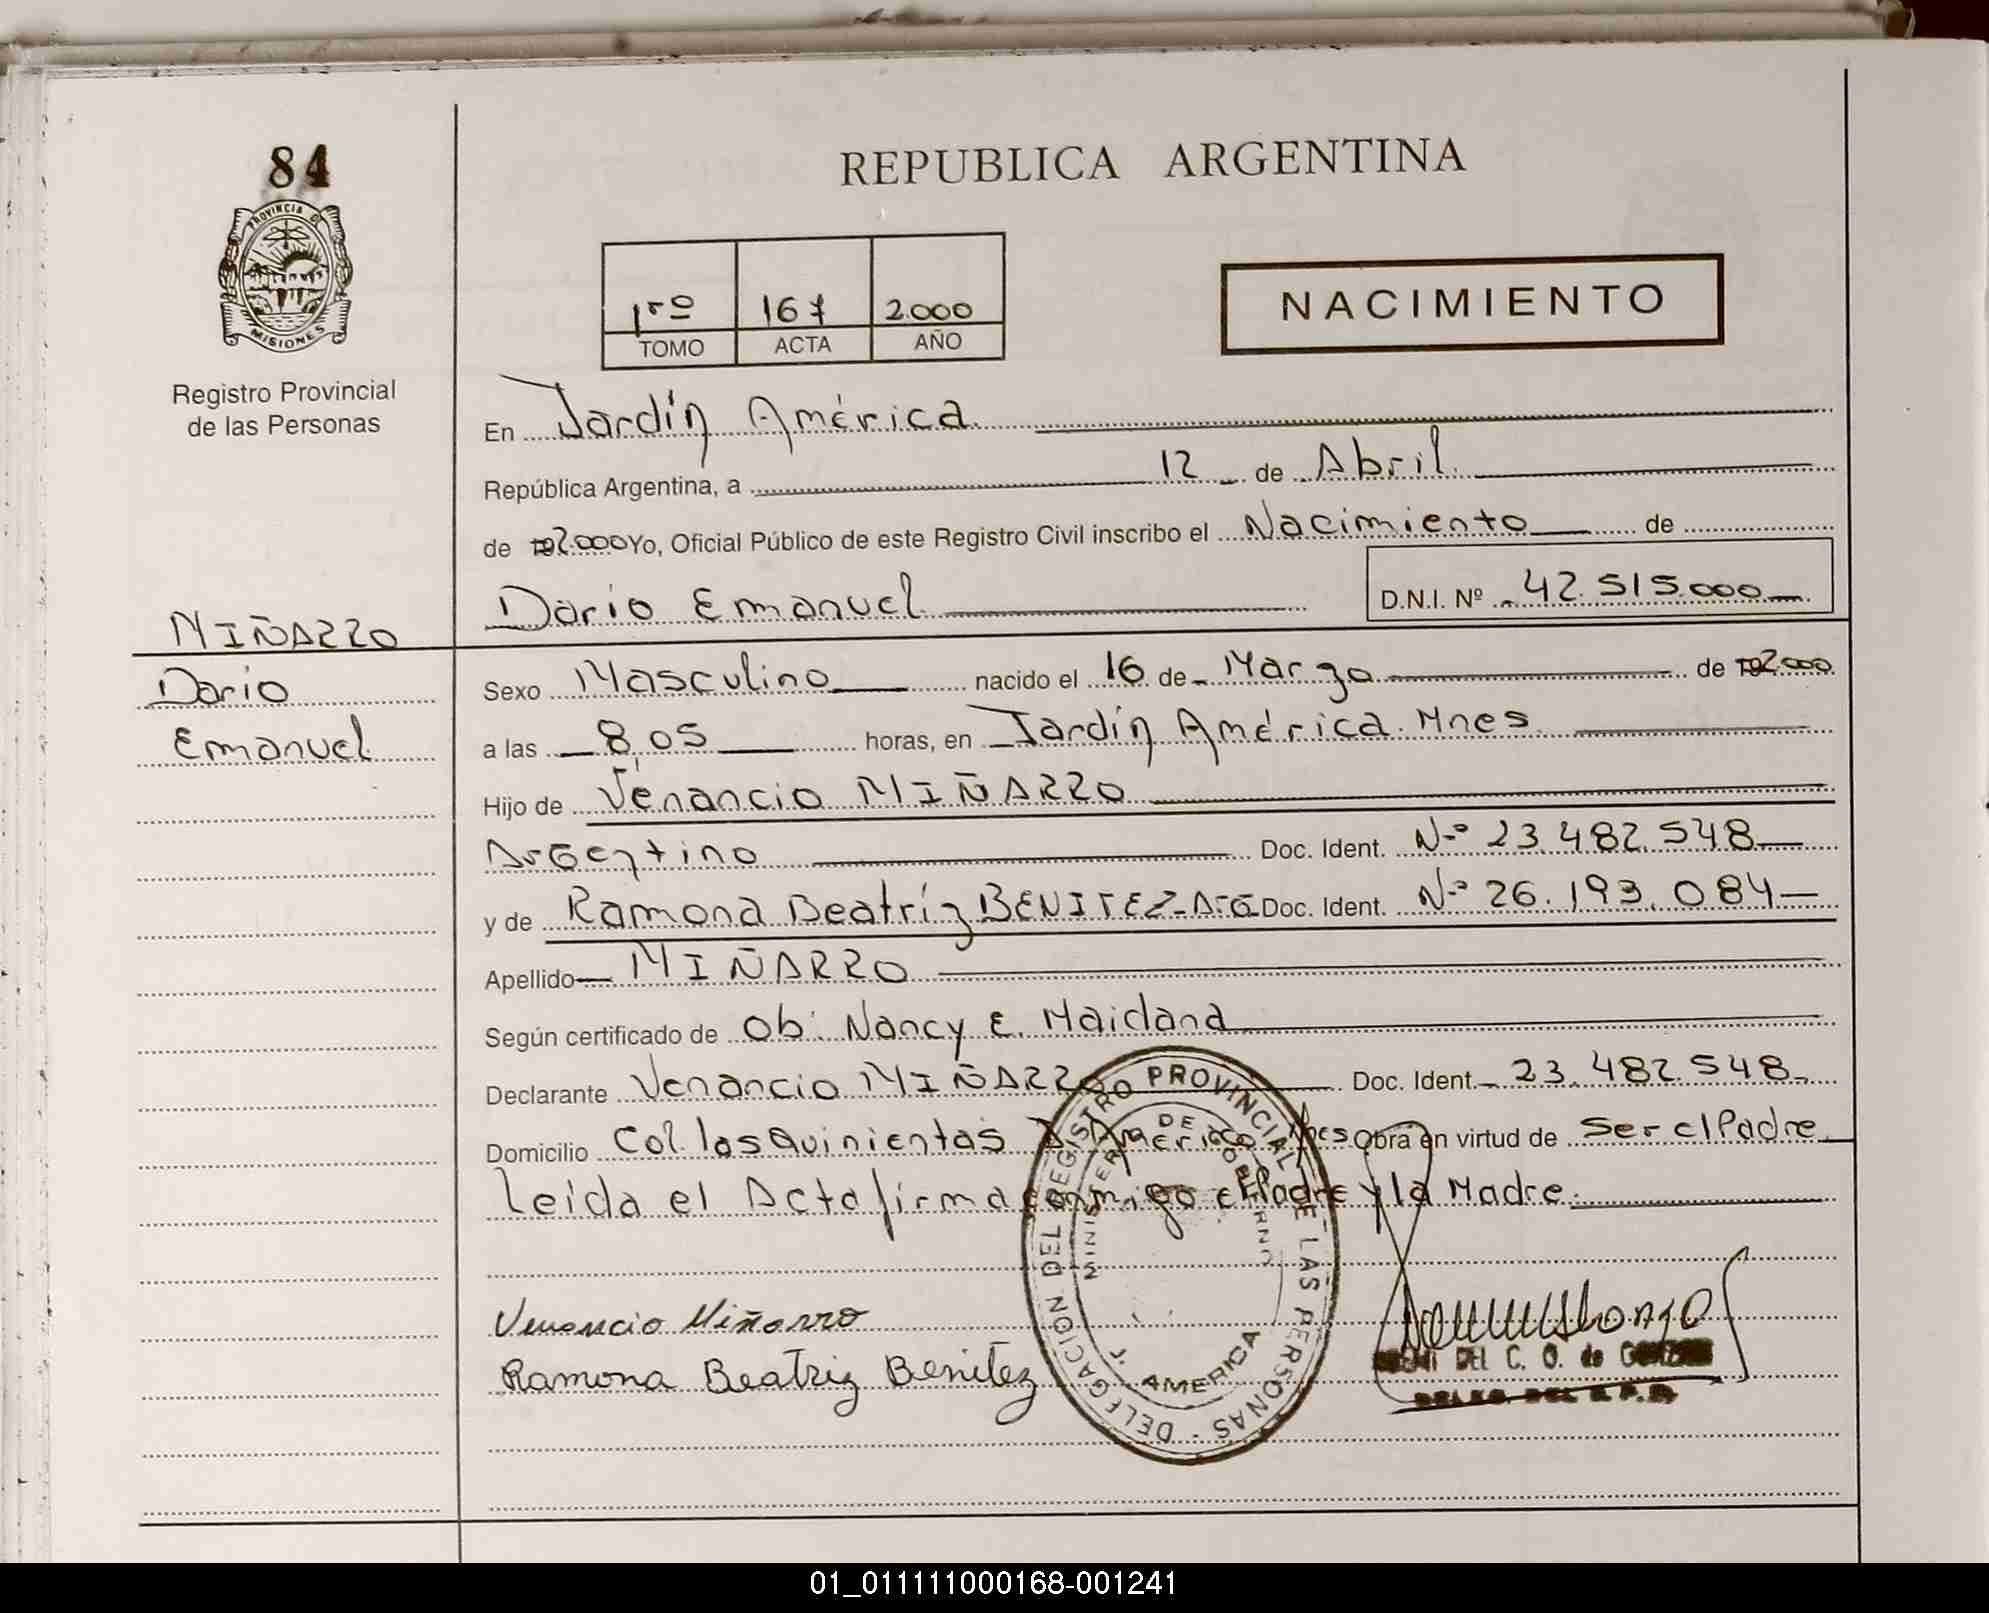 84
PROVINCIA D
MISIONES
Registro Provincial
de las Personas
REPUBLICA ARGENTINA
1ro 167 2.000
TOMO ACTA AÑO
NACIMIENTO
En Jardín América
República Argentina, a 12 de Abril
de 2.000 Yo, Oficial Público de este Registro Civil inscribo el Nacimiento de
Dario Emanuel D.N.I. Nº 42.515.000
MIÑARRO
Dario
Emanuel
Sexo Masculino nacido el 16 de Marzo de 2.000
a las 8,05 horas, en Jardín América. Mnes
Hijo de Venancio MIÑARRO
Argentino Doc. Ident. Nº 23.482.548
y de Ramona Beatríz BENITEZ-Arg Doc. Ident. Nº 26.193.084
Apellido MIÑARRO
Según certificado de Ob: Nancy E. Maidana
Declarante Venancio MIÑARRO Doc. Ident. 23.482.548
Domicilio Col. las Quinientas J. América Mnes Obra en virtud de Ser el Padre
Leida el Acta firma conmigo el Padre y la Madre.
Venancio Miñarro
Ramona Beatriz Benitez
DELEGACION DEL REGISTRO PROVINCIAL DE LAS PERSONAS
MINISTERIO DE GOBIERNO
J. AMERICA
DEL C. O. de
01_011111000168-001241